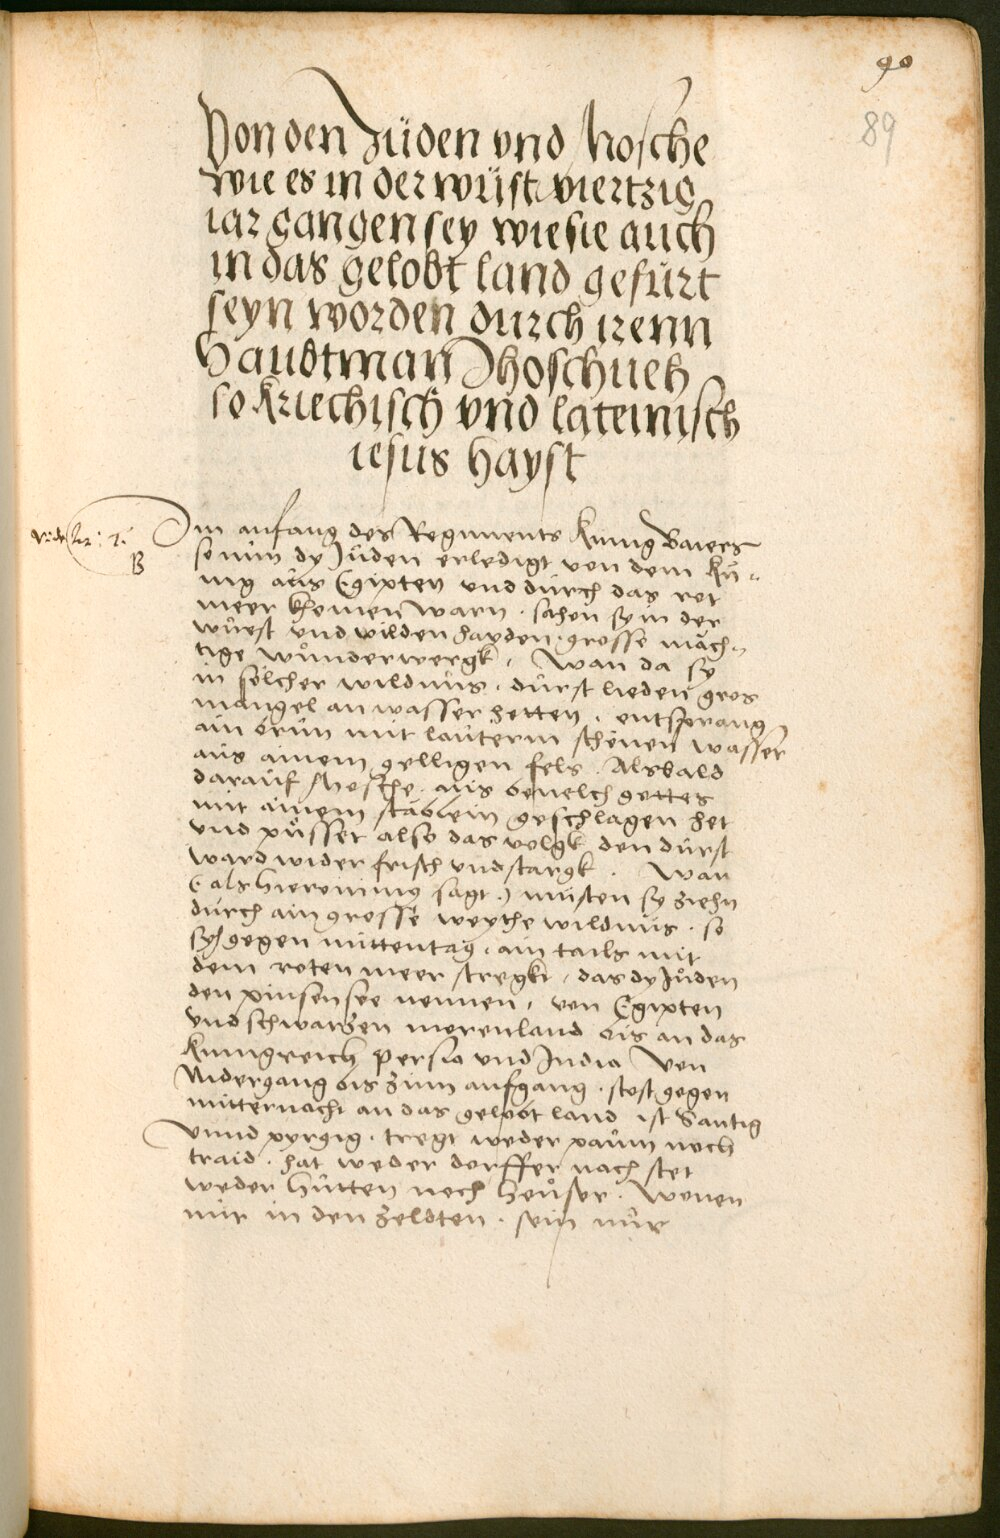 90
89
Von den Jüden vnd Mosche
wie es in der wüst viertzig
iar gangen sey wie sie auch
in das gelobt land gefürt
seyn worden durch irenn
haubtman Jhoschueh
so kriechisch vnd lateinisch
iesus hayst
B
Im anfang des Regiments Kunig Baiers
so nun dy Jüden erledigt von dem Kü-
nig aus Egipten vnd durch das rot
meer khomen warn. sahen sy in der
wüest vnd wilden hayden. grosse mäch-
tige wunderwergk, Wan da sy
in sölcher wildnus. durst lieden gros
mangel an wasser hetten. entsprang
ain brun mit lauterm schönen wasser
aus ainem gelligen fels. Alsbald
darauf Mosche. aus bevelch gottes
mit ainem stäblein geschlagen het
vnd püsset also das volgk den durst
ward wider frisch vnd stargk. Wan
(als Hieronimus sagt.) musten sy ziehn
durch ain grosse weythe wildnus. so
sych gegen mittentag. ain tails mit
dem roten meer stregkt, das dy Jüden
den pinsensee nennen, von Egipten
vnd schwarzen morenland bis an das
Kunigreich Persia vnd India Von
Nidergang bis zum aufgang. stost gegen
mitternacht an das gelobt land ist Santig
Vnnd pyrgig. tregt weder paum noch
traid. hat weder dorffer nach stet
weder hütten noch heuser. Wonen
nur in den zeldten. sein nur